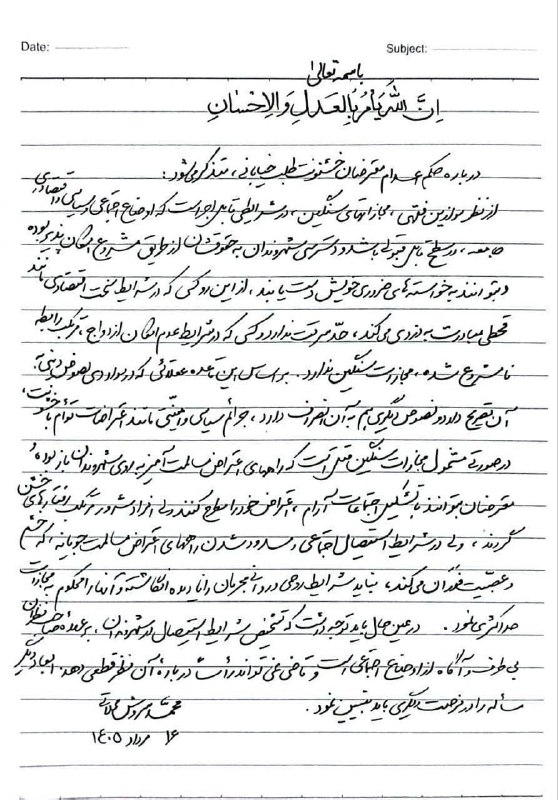 Date:
Subject:
باسمه تعالی
اِنَّ اللهَ یَأمُرُ بِالعَدلِ وَالاِحْسٰانِ
درباره حکم اعدام معترضان خشونت طلب خیابانی، متذکر می‌شود:
از نظر موازین فقهی، مجازاتهای سنگین، در شرایطی قابل اجرا است که اوضاع اجتماعی و سیاسی و اقتصادی
جامعه، در سطح قابل قبولی باشد و دسترسی شهروندان به حقوقشان از طریق مشروع امکان پذیر بوده
و بتوانند به خواسته‌های ضروری خویش دست یابند، از این رو کسی که در شرایط سخت اقتصادی مانند
قحطی مبادرت به دزدی می‌کند، حدّ سرقت ندارد و کسی که در شرایط عدم امکان ازدواج، مرتکب رابطه
نامشروع شده، مجازات سنگین ندارد. بر اساس این قاعده عقلائی که در مواردی نصوص دینی
آن تصریح دارد و نصوص دیگری هم به آن انصراف دارد، جرائم سیاسی و امنیّتی مانند اعتراضات توأم با خشونت،
در صورتی مشمول مجازات سنگین است که راههای اعتراض مسالمت آمیز به روی شهروندان باز بوده و
معترضان بتوانند با تشکیل اجتماعات آرام، اعتراض خود را مطرح کنند ولی افراد شرور مرتکب رفتارهای خشن
گردند، ولی در شرایط استیصال اجتماعی و مسدود شدن راههای اعتراض مسالمت جویانه، که خشم
و عصبیت فوران می‌کند، نباید شرایط روحی و روانی مجرمان را نادیده انگاشته و آنها را محکوم به مجازات
حداکثری نمود. در عین حال باید توجه داشت که تشخیص شرایط استیصال در شهروندان، بر عهده صاحب نظران
بی طرف و آگاه از اوضاع اجتماعی است و قاضی نمی تواند رأساً درباره آن نظر قطعی دهد. ابعاد دیگر
مسأله را در فرصت دیگری باید تبیین نمود.
محمد سروش محلاتی
۱۶ مرداد ۱۴۰۵